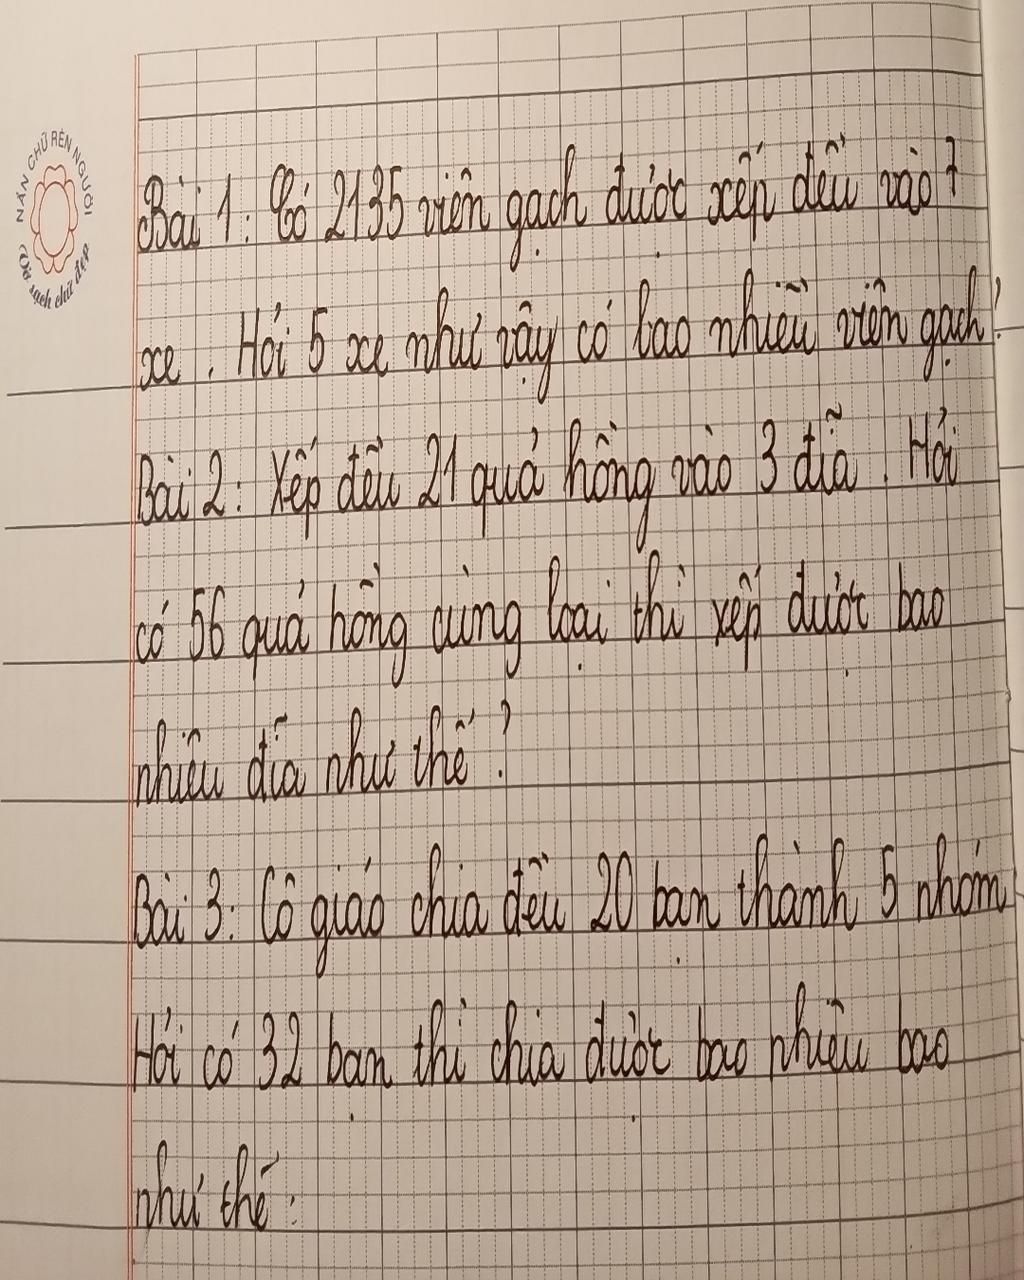 NẮN CHỮ RÈN NGƯỜI
Vở sạch chữ đẹp
Bài 1: Có 2135 viên gạch được xếp đều vào 7
xe. Hỏi 5 xe như vậy có bao nhiêu viên gạch?
Bài 2: Xếp đều 21 quả hồng vào 3 đĩa. Hỏi
có 56 quả hồng cùng loại thì xếp được bao
nhiêu đĩa như thế?
Bài 3: Cô giáo chia đều 20 bạn thành 5 nhóm
Hỏi có 32 bạn thì chia được bao nhiêu bao
như thế: